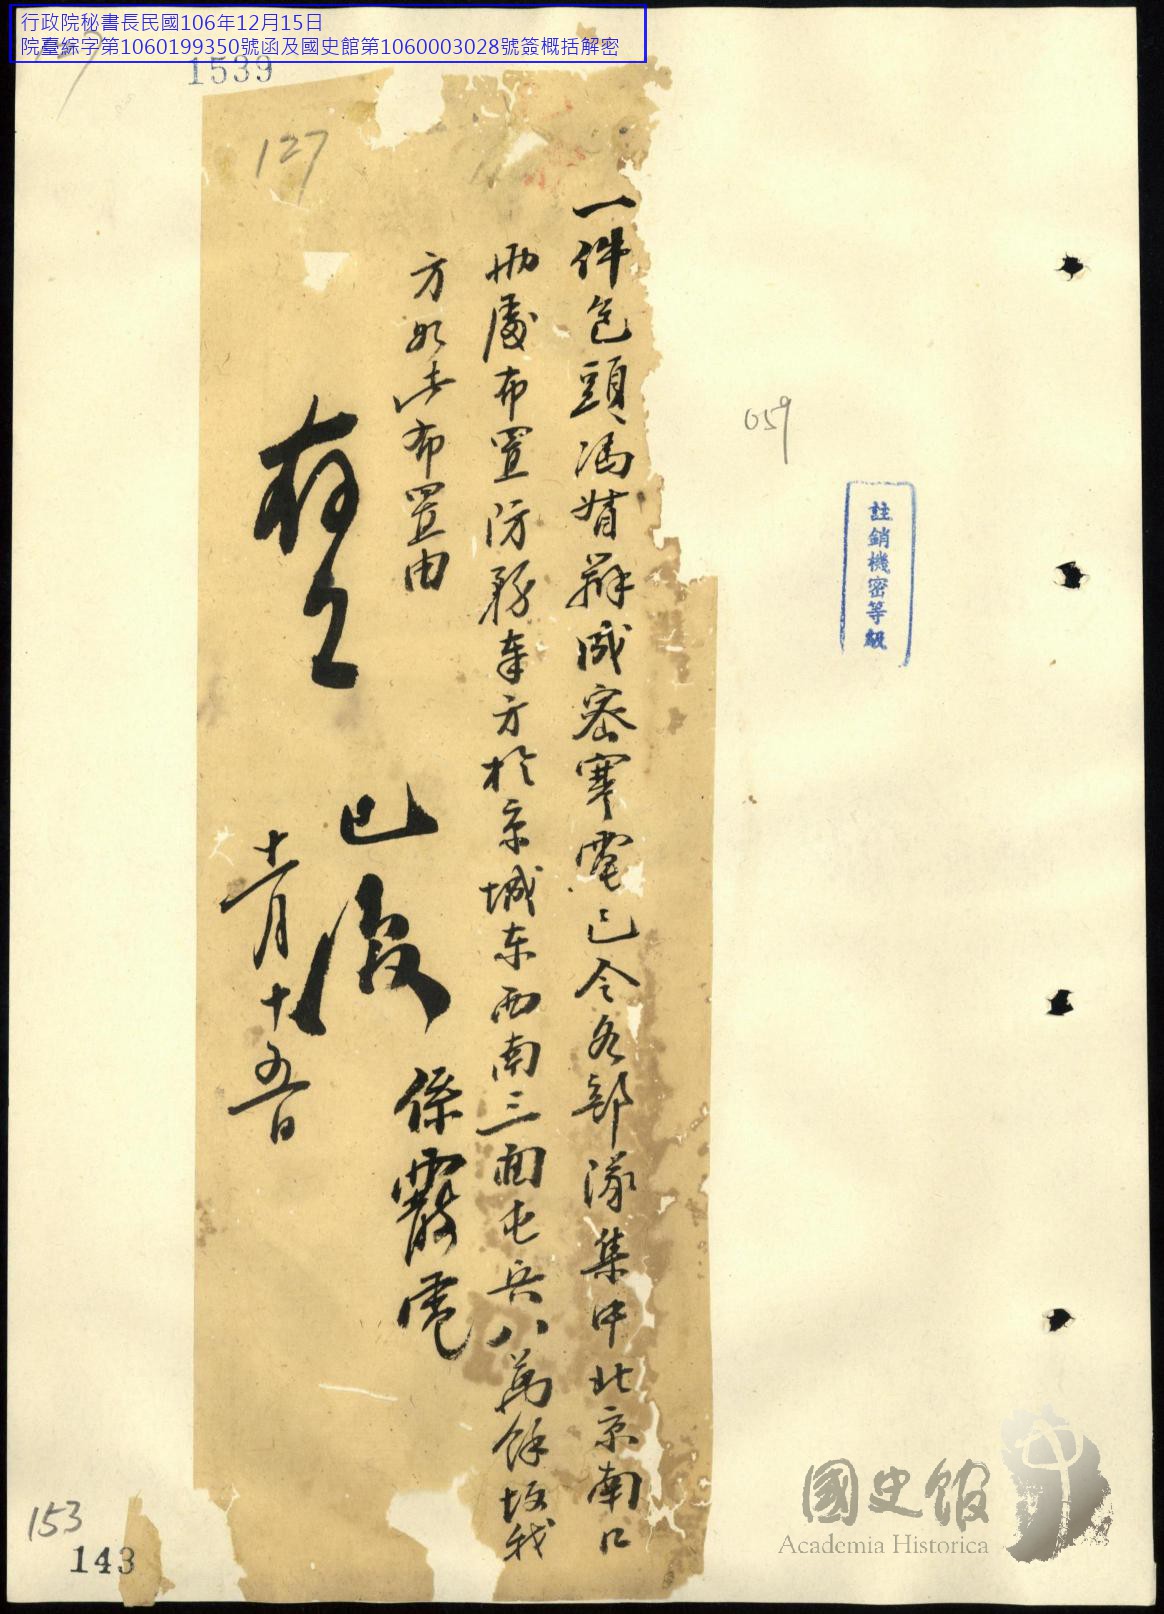 行政院秘書長民國106年12月15日
院臺綜字第1060199350號函及國史館第1060003028號簽概括解密
1539
127
059
註銷機密等級
一件包頭馮婿辭咸密寒電已令各部隊集中北京南口
兩處布置防務奉方於京城东西南三面屯兵八萬餘故我
方如此布置由
存
已復
係霰電
十一月十五日
153
143
國史館
Academia Historica